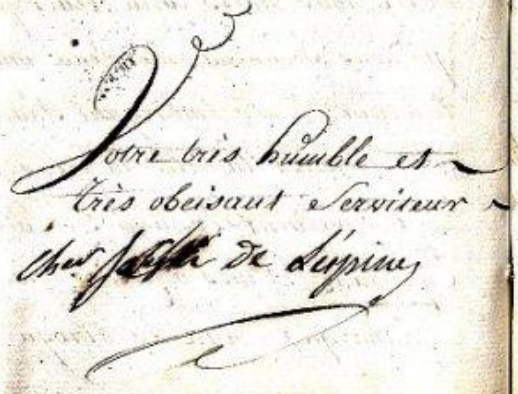 Votre très humble et
très obeisant Serviteur
Cher de Lespine